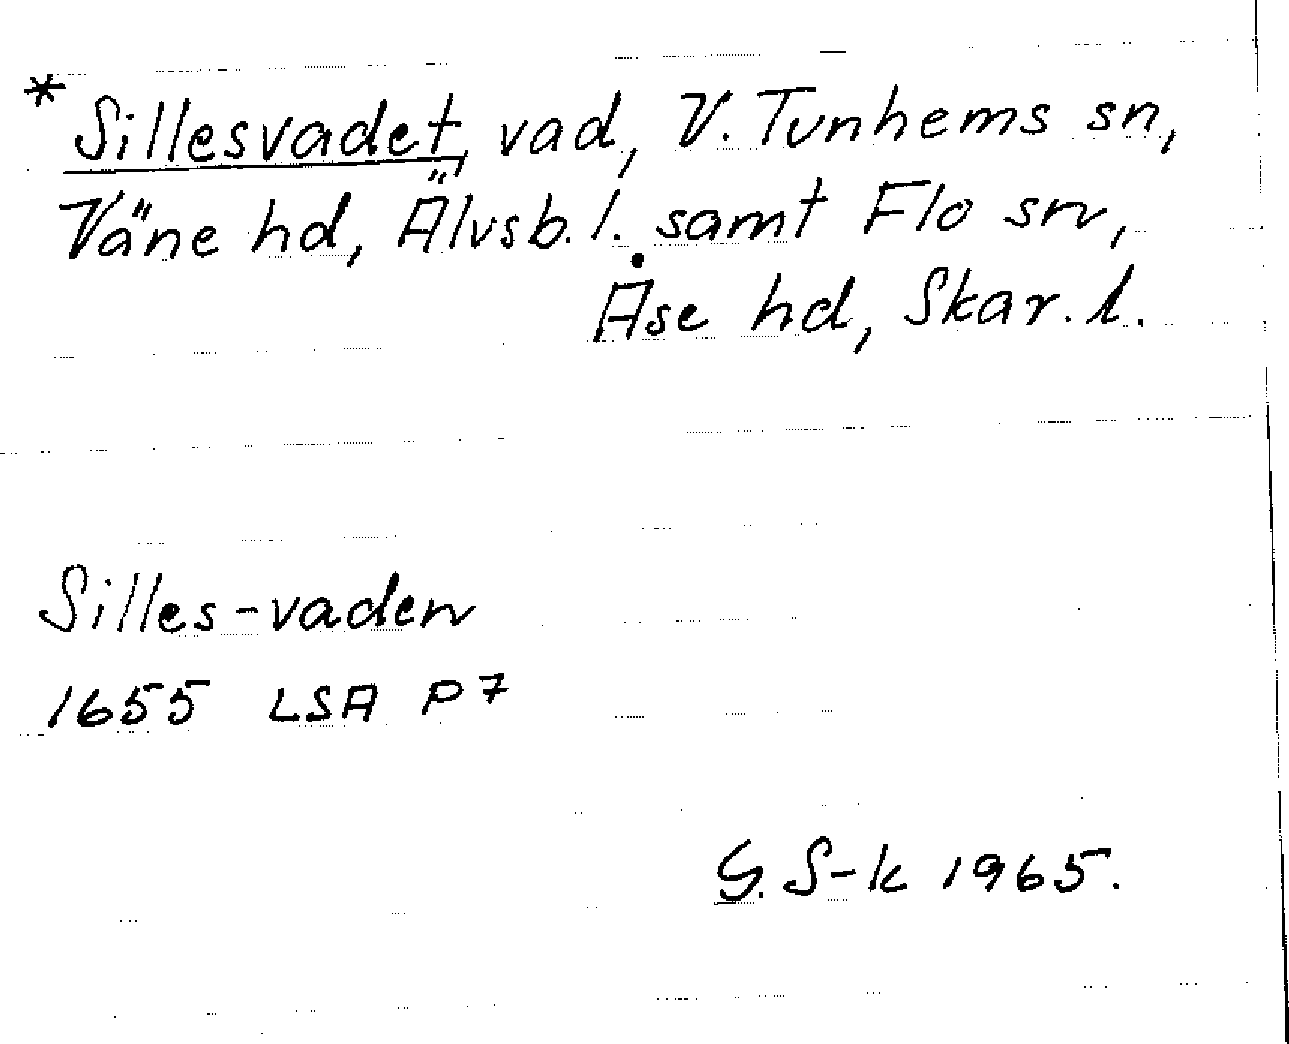 * Sillesvadet, vad, V. Tunhems sn,
Väne hd, Älvsb. l. samt Flo sn,
Åse hd, Skar. l.
Silles-vaden
1655 LSA P7
G. S-k 1965.